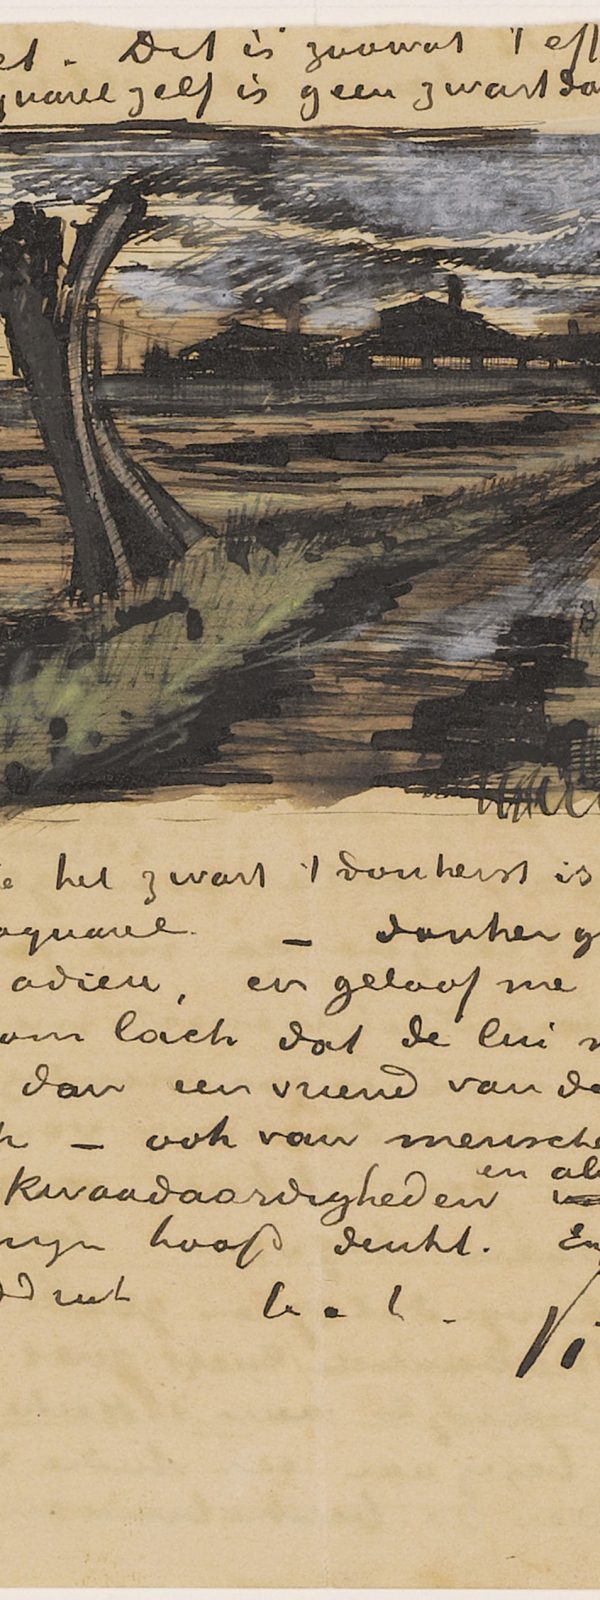 et. Dit is zoowat 't eff
quarel zelf is geen zwart da
e het zwart 't donkerst is
aquarel. — donker g
adieu, en geloof me
om lach dat de lui
dan een vriend van de
h — ook van mensche
kwaadaardigheden en al
mijn hoofd denkt. En
ddruk t. a. t.
Vi